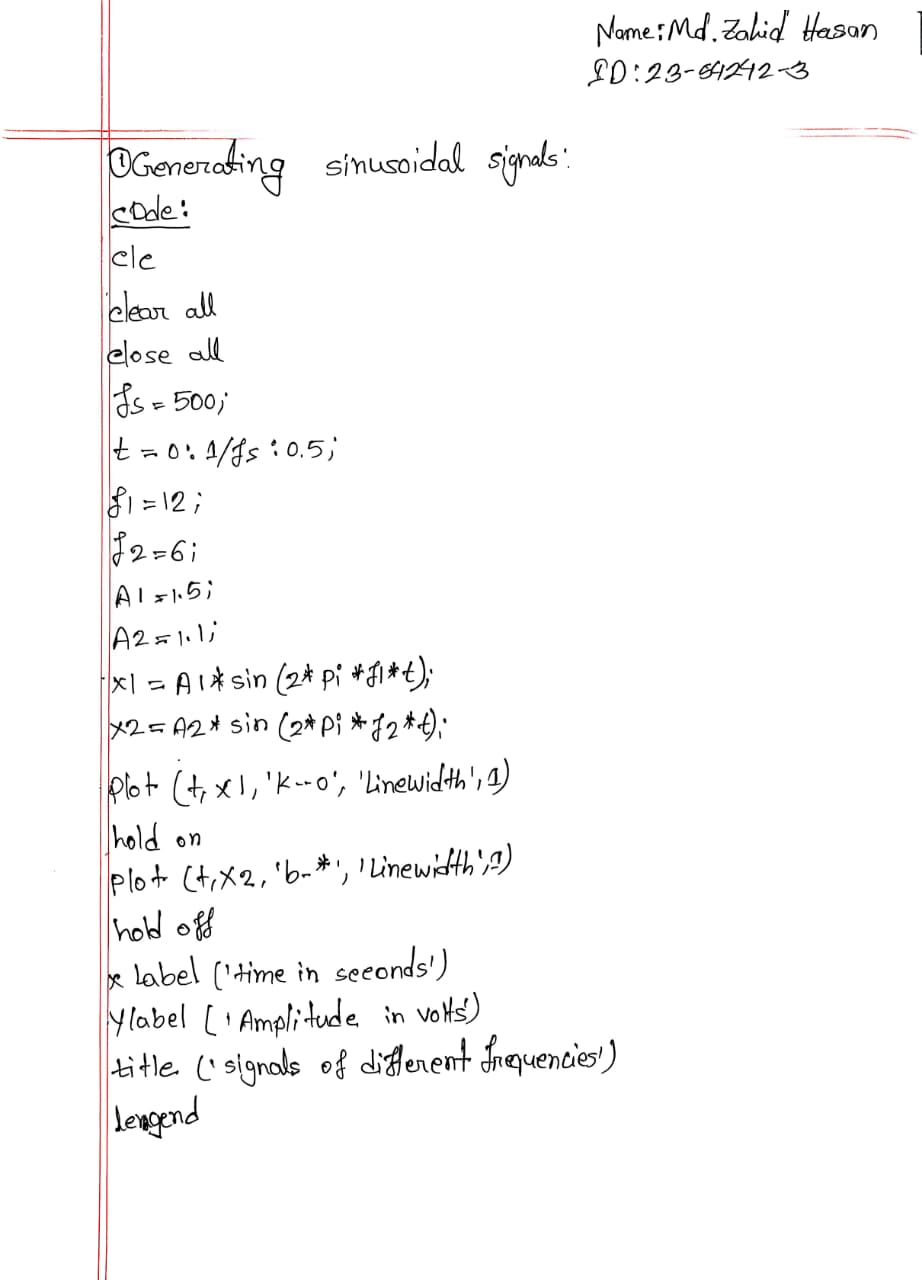 Name: Md. Zahid Hasan
ID: 23-54242-3
① Generating sinusoidal signals:
code:
clc
clear all
close all
fs = 500;
t = 0: 1/fs : 0.5;
f1 = 12;
f2 = 6;
A1 = 1.5;
A2 = 1.1;
x1 = A1* sin (2* pi *f1*t);
x2 = A2* sin (2* pi * f2*t);
plot (t, x1, 'k--o', 'linewidth', 1)
hold on
plot (t, x2, 'b-*', 'linewidth', 1)
hold off
x label ('time in seconds')
ylabel ('Amplitude in volts')
title ('signals of different frequencies')
lengend